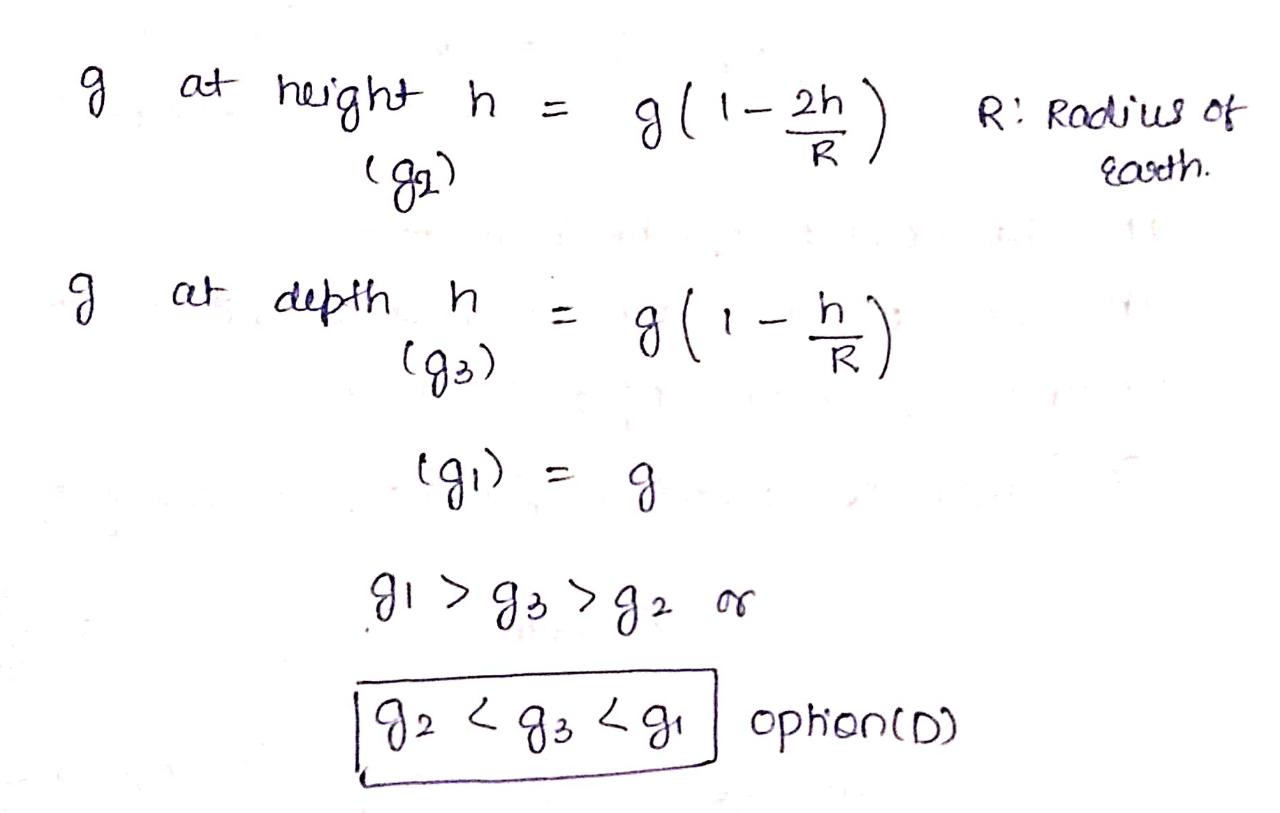 g at height h = g(1 - 2h/R) R: Radius of
(g₂) Earth.
g at depth h = g(1 - h/R)
(g₃)
(g₁) = g
g₁ > g₃ > g₂ or
g₂ < g₃ < g₁ option(D)